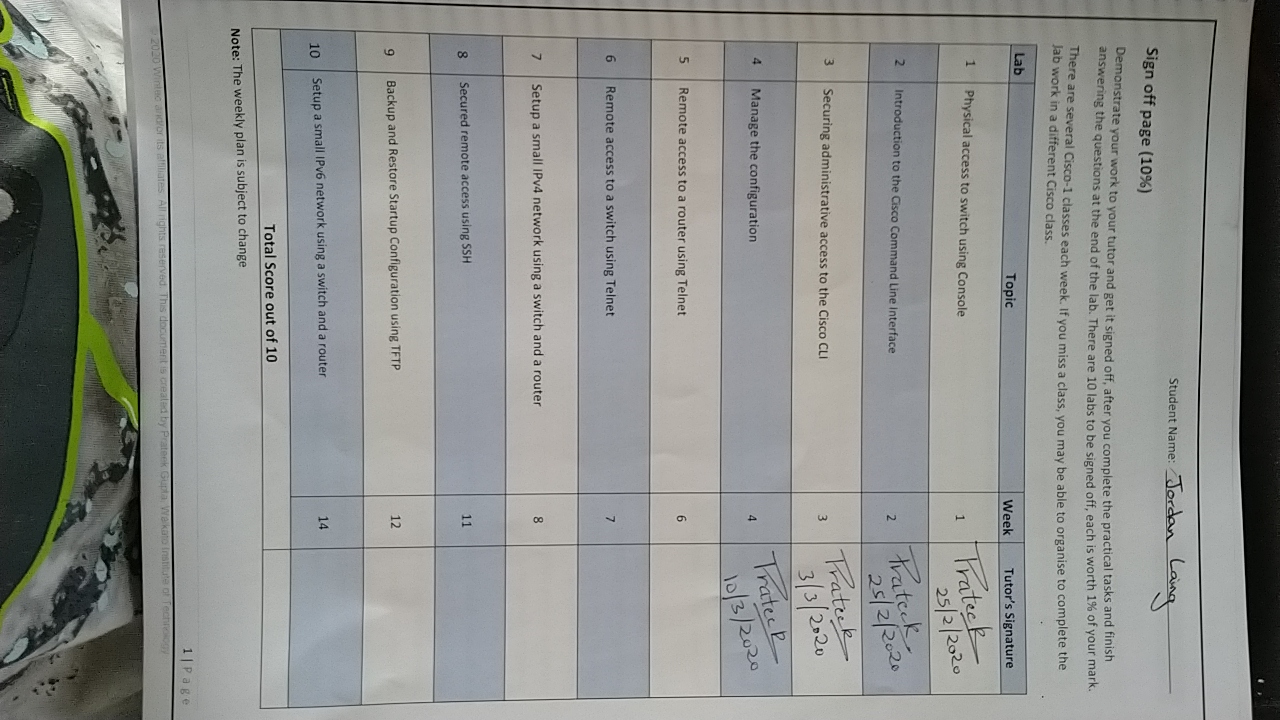 Student Name: Jordan Laing
Sign off page (10%)
Demonstrate your work to your tutor and get it signed off, after you complete the practical tasks and finish
answering the questions at the end of the lab. There are 10 labs to be signed off, each is worth 1% of your mark.
There are several Cisco-1 classes each week. If you miss a class, you may be able to organise to complete the
lab work in a different Cisco class.
Lab Topic Week Tutor's Signature
1 Physical access to switch using Console 1 Prateek 25/2/2020
2 Introduction to the Cisco Command Line Interface 2 Prateek 25/2/2020
3 Securing administrative access to the Cisco CLI 3 Prateek 3/3/2020
4 Manage the configuration 4 Prateek 10/3/2020
5 Remote access to a router using Telnet 6
6 Remote access to a switch using Telnet 7
7 Setup a small IPv4 network using a switch and a router 8
8 Secured remote access using SSH 11
9 Backup and Restore Startup Configuration using TFTP 12
10 Setup a small IPv6 network using a switch and a router 14
Total Score out of 10
Note: The weekly plan is subject to change
1 | Page
2020 and/or its affiliates. All rights reserved. This document is created by Prateek Gupta, Waikato Institute of Technology